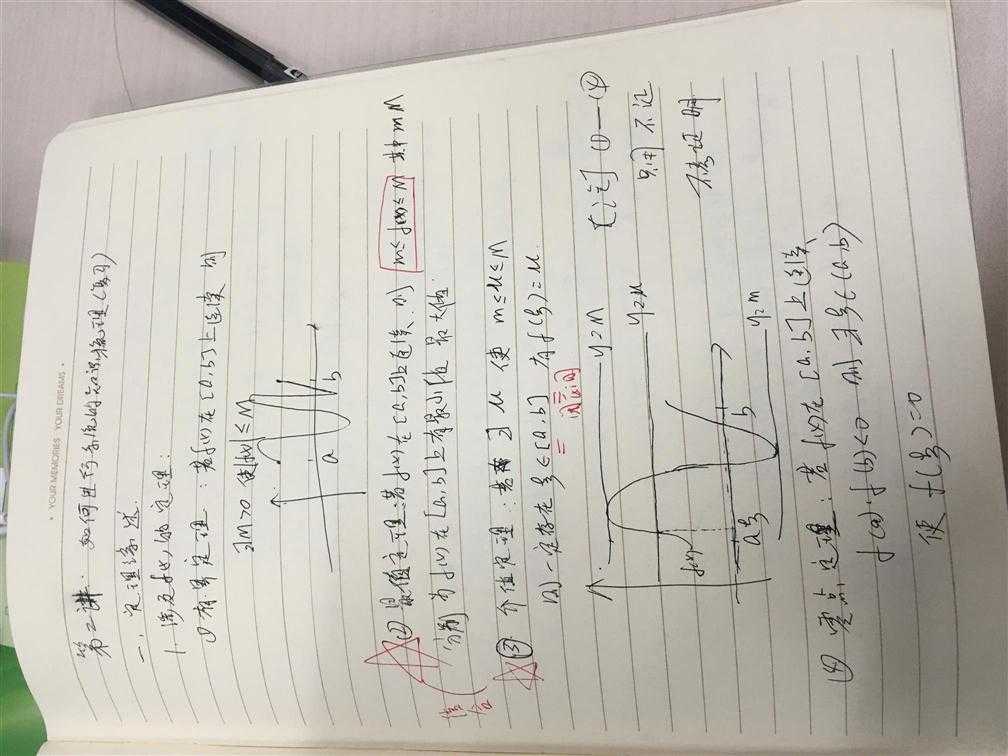 • YOUR MEMORIES YOUR DREAMS •
第二讲: 如何进行系统的
一、定理综述
1. 涉及f(x)的定理:
①有界定理:若f(x)在[a,b]上连续 则
∃M>0 使|f(x)|≤M
a b
②最值定理:若f(x)在[a,b]上连续.则 m≤f(x)≤M 其中m M
分别为f(x)在[a,b]上有最小值 最大值
综合
③介值定理:若 ∃ μ 使 m≤μ≤M
则一定存在ξ∈[a,b] 有f(ξ)=μ.
闭区间
y=M
[注] ①—④
y=μ
只用不证
f(x)
不考证明
a ξ b
y=m
④零点定理:若f(x)在[a,b]上连续、
f(a)·f(b)<0 则∃ξ∈(a,b)
使 f(ξ)=0